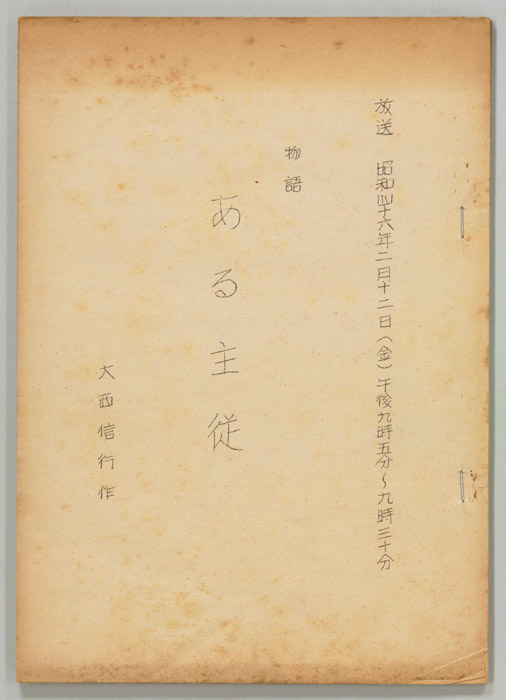 放送 昭和四十六年二月十二日（金）午後九時五分〜九時三十分
物語
ある主従
大西信行作